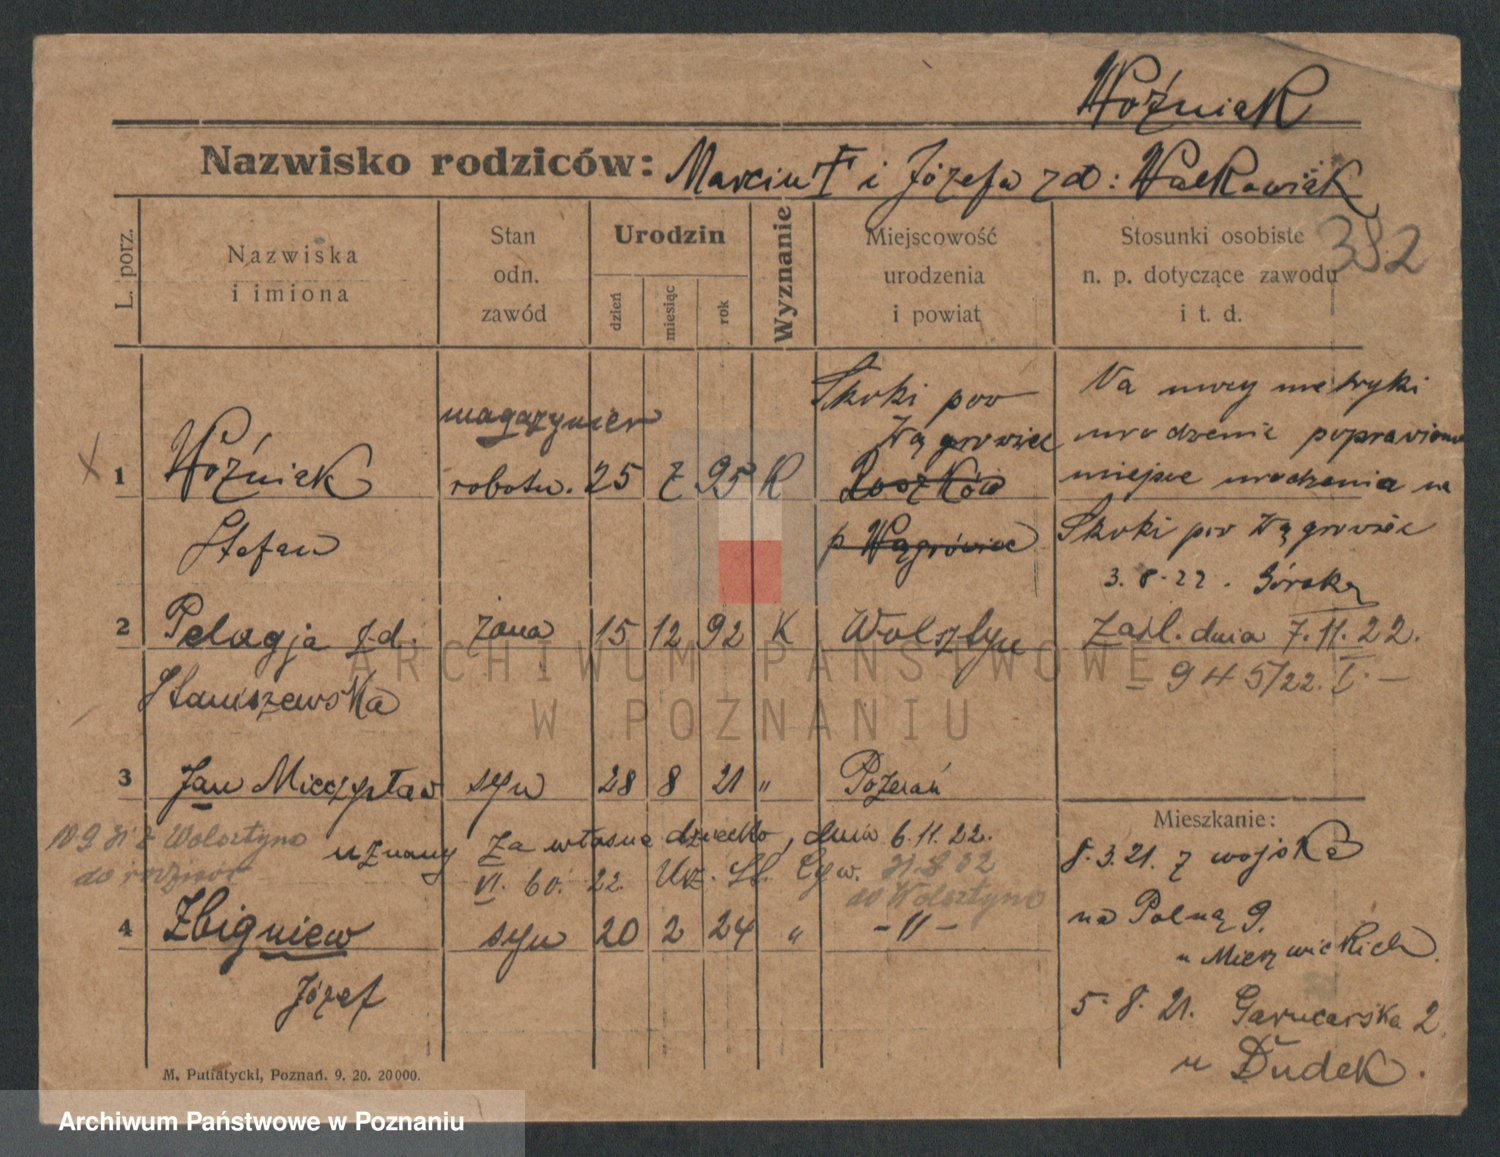 Woźniak
Nazwisko rodziców: Marcin † i Józefa z d: Walkowiak
382
L. porz.
Nazwiska
i imiona
Stan
odn.
zawód
Urodzin
dzień
miesiąc
rok
Wyznanie
Miejscowość
urodzenia
i powiat
Stosunki osobiste
n. p. dotyczące zawodu
i t. d.
X 1 Woźniak
Stefan
magazynier
robotn. 25 Z 95 K
Skoki pow
Wągrowiec
Roszków
p Wągrówiec
Na mocy metryki
urodzenia poprawiono
miejsce urodzenia na
Skoki pow Wągrowiec
3.8.22. Górska
2 Pelagja z d. żona 15 12 92 K Wolsztyn Zaśl. dnia 7.11.22.
Staniszewska
945/22. I. —
3 Jan Mieczysław syn 28 8 21 " Poznań
uznany za własne dziecko, dnia 6.11.22.
VI. 60. 22. Urz. St. Cyw.
z Wolsztyna
do rodziców
do Wolsztyna
4 Zbigniew syn 20 2 24 " - 11 -
Józef
Mieszkanie:
8.3.21. z wojska
na Polną 9.
u Mierzwickich.
5.8.21. Garncarska 2
u Dudek.
M. Putiatycki, Poznań. 9. 20. 20000.
ARCHIWUM PAŃSTWOWE
W POZNANIU
Archiwum Państwowe w Poznaniu